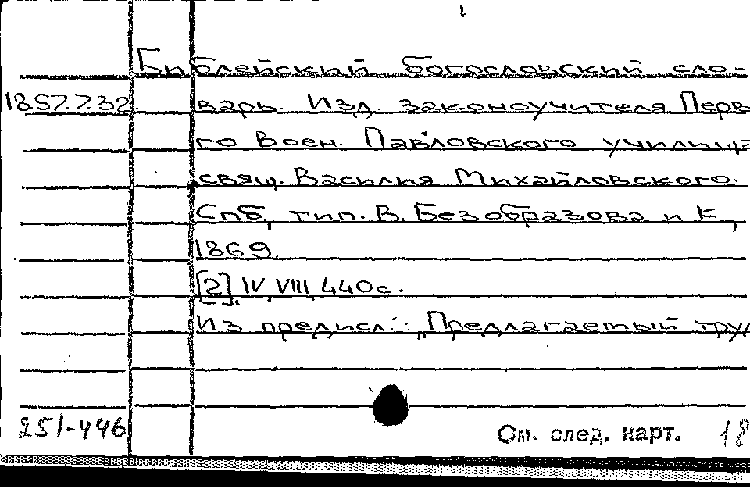 Библейский богословский сло-
18.57.7.32 варь. Изд. законоучителя Перв
го Воен. Павловского училищ
свящ. Василия Михайловского.
Спб, тип. В. Безобразова и К,
1869.
[2] IV, VIII, 440с.
Из предисл.: „Предлагаемый тру
251-446 См. след. карт. 18